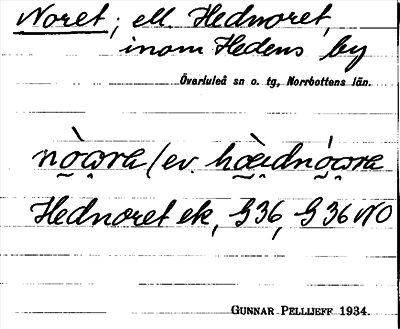 Noret; ell Hednoret,
inom Hedens by
Överluleå sn o. tg, Norrbottens län.
nò̰ω̭ra (ev. hæ̰̀i̭dnó̰ω̭ra
Hednoret ek, G36, G36 NO
GUNNAR PELLIJEFF 1934.